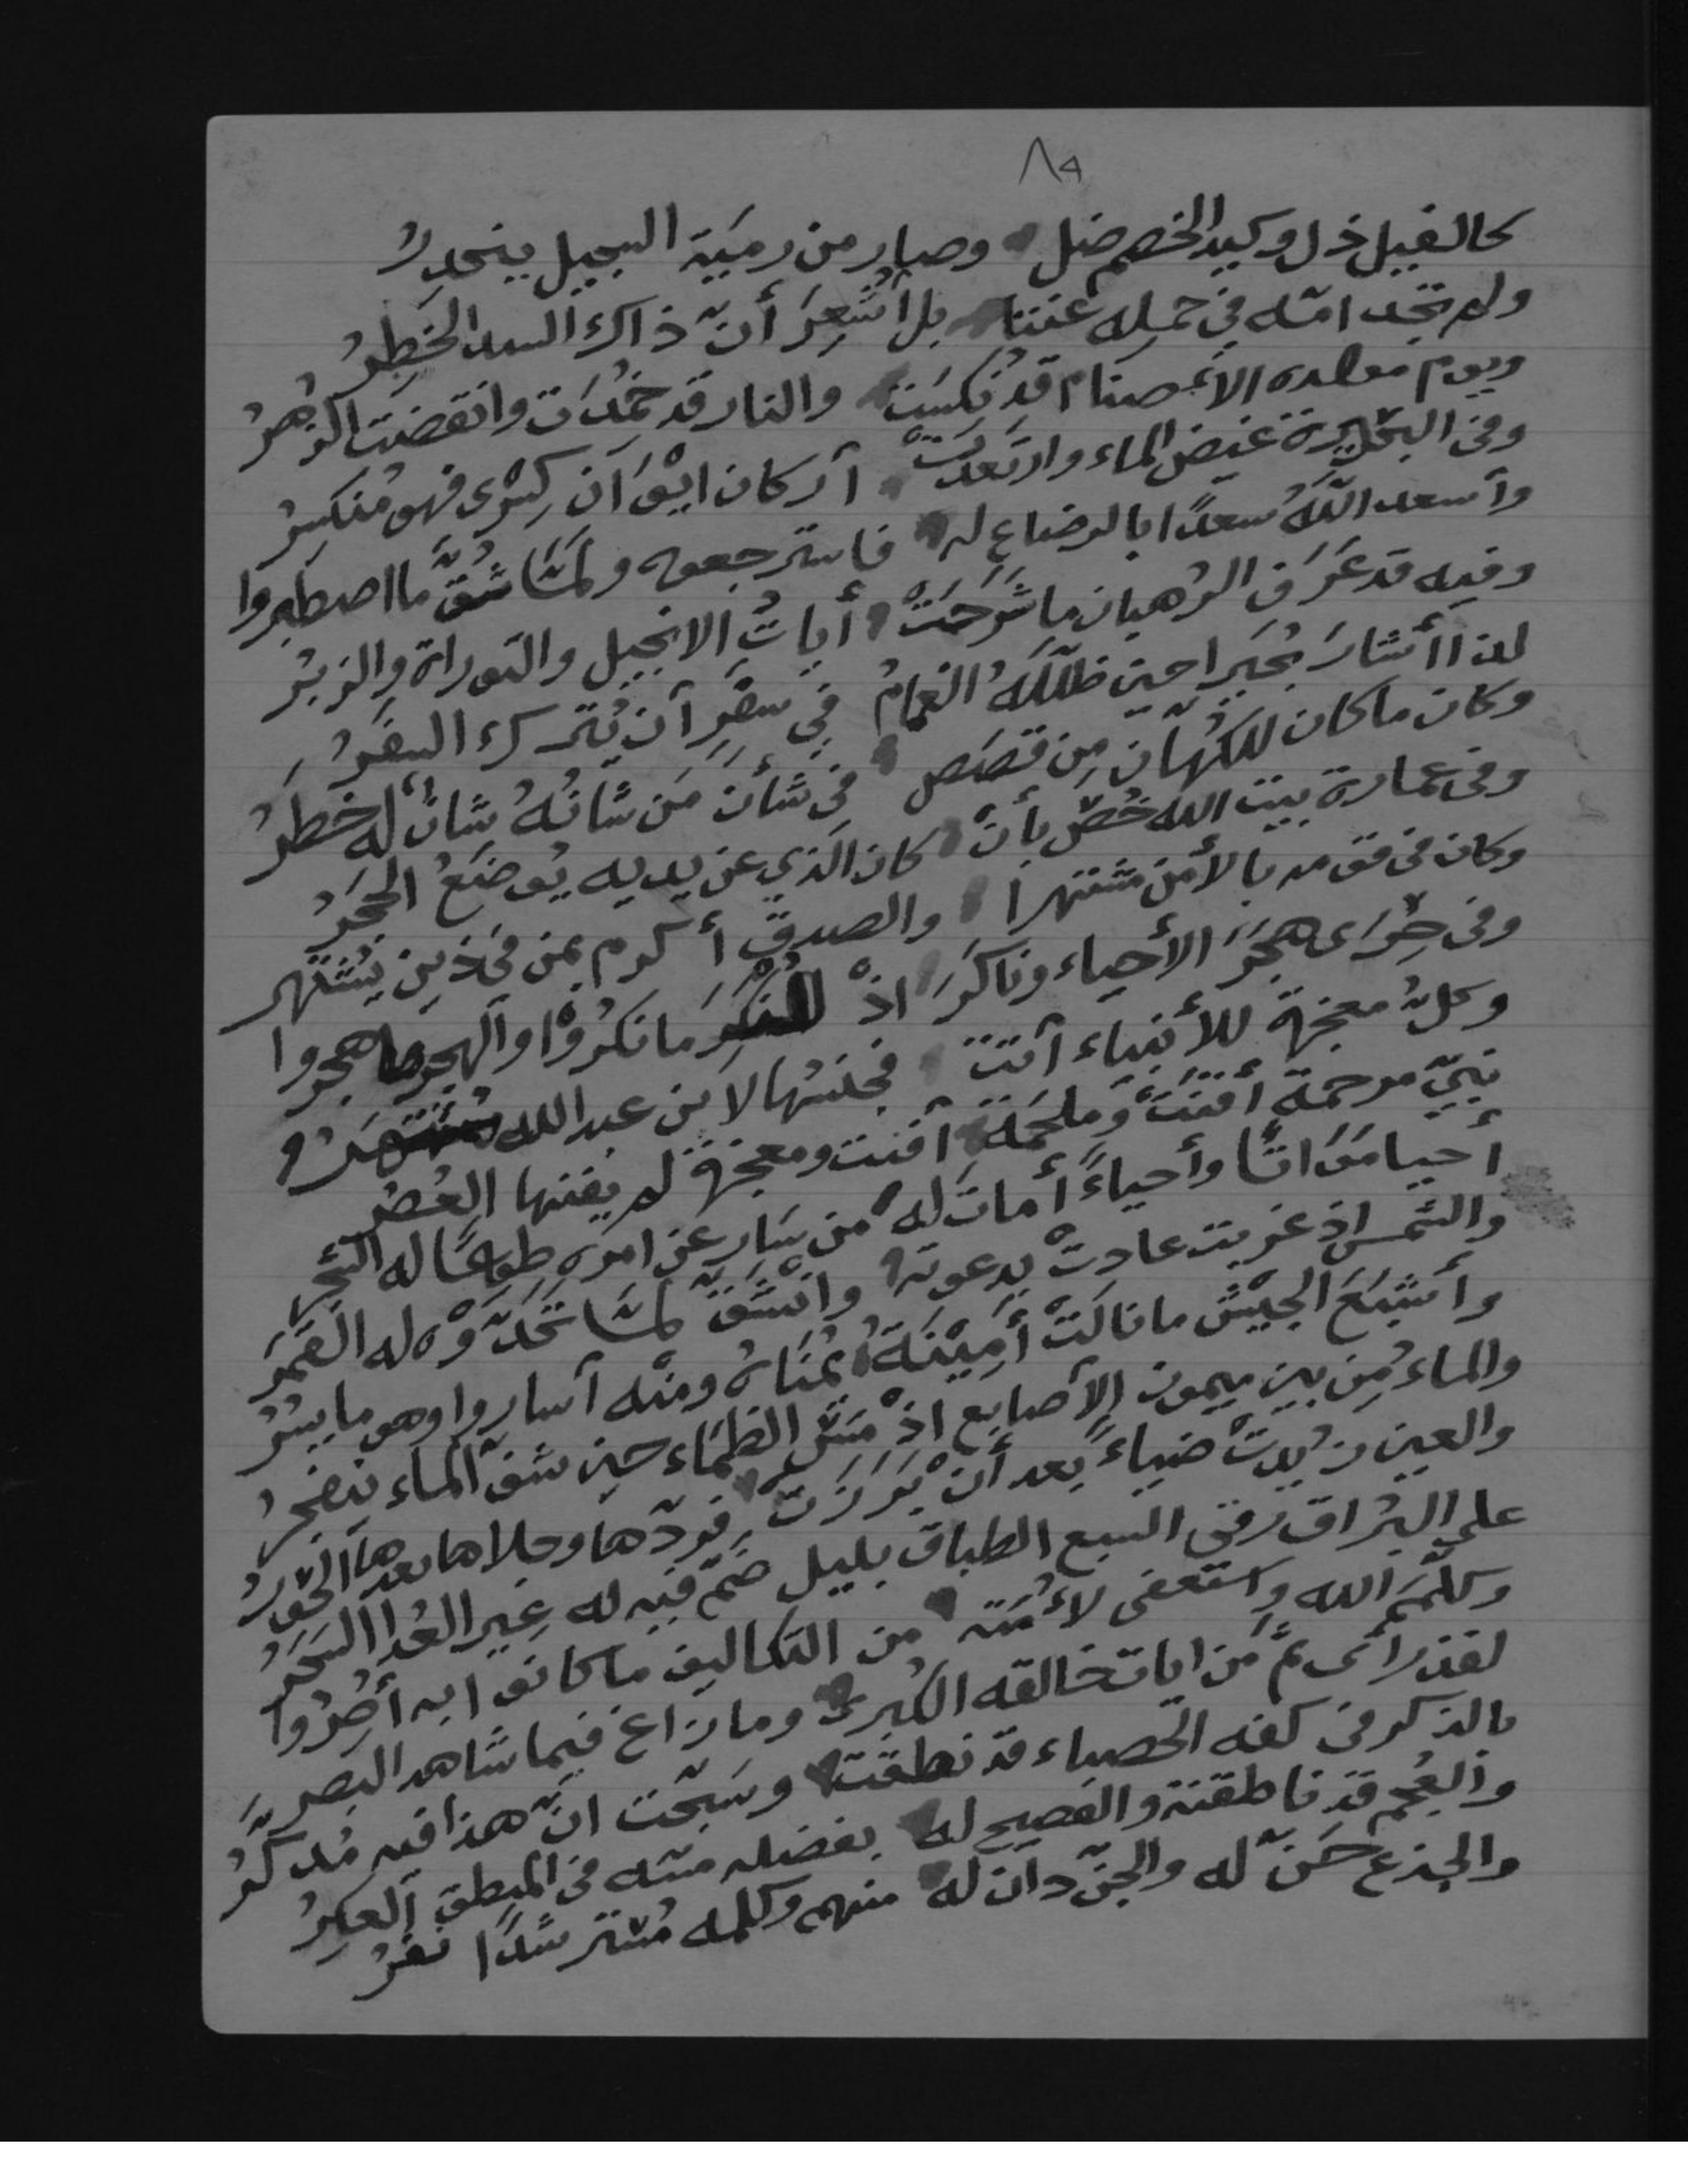 ٨٩
كالفيل ذل وكيد الخصم ضل وصار من رمية السجيل ينحدرُ
ولم تجد امّه في حمله عننا بل اشعِرَ أنّ ذاك السيد الخَطِرُ
ويوم مولده الأصنام قد نُكِسَت والنار قد خَمُدَت وانقضت الزُهرُ
وفى البحيرة غيض الماء وارتعدت أركان ايْوَان كِسْرى فهو مُنكسِرُ
وأسعد اللّهُ سعدًا بالرضاع له فاسترجعوه ولمّا شُقَّ ما اصطَبروا
وفيه قد عَرَف الرهبان ما شَرَحَتْ أياتُ الانجيل والتوراة والزبُرُ
لذا أشارَ بُحَيرا حين ظلّلَهُ الغمامُ فِي سفرٍ أن يُترك السفَرُ
وكان ما كان للكُهّان مِن قصَصٍ فى شأن مَن شانُهُ شانٌ له خطَرُ
وفى عمارة بيت الله خُصّ بأن كان الذي عن يديه يُوضَعُ الحجَرُ
وكان فى قومه بالأمن مشتهرا والصدق أكرم بمن فى ذين يَشتهر
وفى حِرَاى هجَرَ الأحياء وناكَرَ اذْ المنكر ما نكرُوْا والهجر ما هجروا
وكلّ معجزة للأنبياء أتت فجنسُها لابن عبد الله
نبيّ مرحمة أفنَت وملحَمَة أفنت ومعجزة لم يفنها العُصُر
أحيا مَوَاتًا وأحياءً أمات له من سَارِ عن امره طوعًا له الشجر
والشمس اذ غربت عادتْ بدعوته وانْشَقّ لمّا تحَدّوْه له القمَر
وأشبَعَ الجيْش ما نالَتْ أمِيْنَهُ يُمْنَاهُ ومنْه أساروا وهو ما يسُرُ
والماءُ مِن بين ميمون الأصابع اذْ مَسّ الظمَاء حين شفّ الماء ينفجرُ
والعين زِيدتْ ضياءً بعد أن بَرَزَت فردّها وجلاها بعدها الحَوَرُ
على البُراق رقى السبع الطباق بليل ضَمّ فيه له غير العُدا السَحَرُ
وكلّمَ الله واستعفى لأمّته من التكاليف ما كانوا به أُصِرُوا
لقد رأى ثمّ من ايات خالقه الكبرى وما زاغ فيما شاهد البصر
بالذكر فى كفه الحصباء قد نطقت وسبّحت انّ هذا فيه مُدكَّرُ
والعُجم قد ناطقته والفصيح له بفضله منّه فى المنطق العَكِرُ
والجذع حَنّ له والجنّ دان له منهم وكلمه مُسترشدًا نفرُ